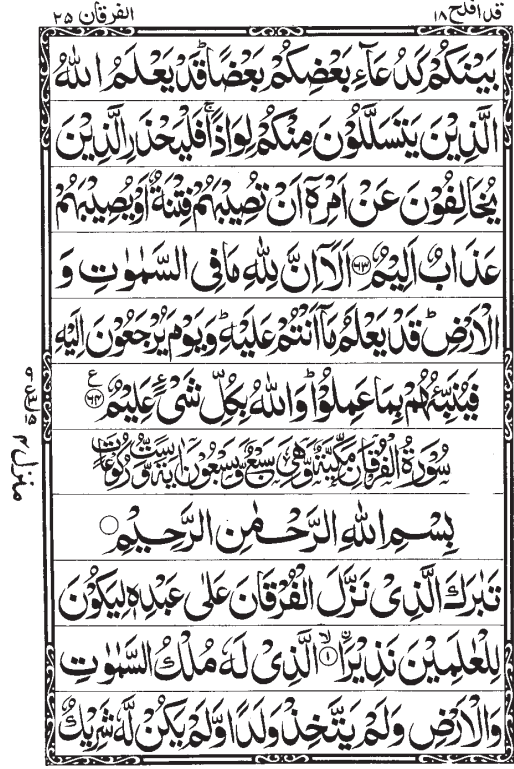 قد افلح ١٨
الفرقان ٢٥
بَيْنَكُمْ كَدُعَآءِ بَعْضِكُمْ بَعْضًاؕ قَدْ يَعْلَمُ اللّٰهُ
الَّذِيْنَ يَتَسَلَّلُوْنَ مِنْكُمْ لِوَاذًاۚ فَلْيَحْذَرِ الَّذِيْنَ
يُخَالِفُوْنَ عَنْ اَمْرِهٖۤ اَنْ تُصِيْبَهُمْ فِتْنَةٌ اَوْ يُصِيْبَهُمْ
عَذَابٌ اَلِيْمٌ ﴿٦٣﴾ اَلَاۤ اِنَّ لِلّٰهِ مَا فِى السَّمٰوٰتِ وَ
الْاَرْضِؕ قَدْ يَعْلَمُ مَاۤ اَنْتُمْ عَلَيْهِؕ وَيَوْمَ يُرْجَعُوْنَ اِلَيْهِ
فَيُنَبِّئُهُمْ بِمَا عَمِلُوْاؕ وَاللّٰهُ بِكُلِّ شَىْءٍ عَلِيْمٌ ﴿٦٤﴾ ع
سُوْرَةُ الْفُرْقَانِ مَكِّيَّةٌ وَّهِيَ سَبْعٌ وَّسَبْعُوْنَ اٰيَةً وَّسِتُّ رُكُوْعَاتٍ
بِسْمِ اللّٰهِ الرَّحْمٰنِ الرَّحِيْمِ
تَبٰرَكَ الَّذِىْ نَزَّلَ الْفُرْقَانَ عَلٰى عَبْدِهٖ لِيَكُوْنَ
لِلْعٰلَمِيْنَ نَذِيْرًاۙ ﴿١﴾ الَّذِىْ لَهٗ مُلْكُ السَّمٰوٰتِ
وَالْاَرْضِ وَلَمْ يَتَّخِذْ وَلَدًا وَّلَمْ يَكُنْ لَّهٗ شَرِيْكٌ
منزل ٤